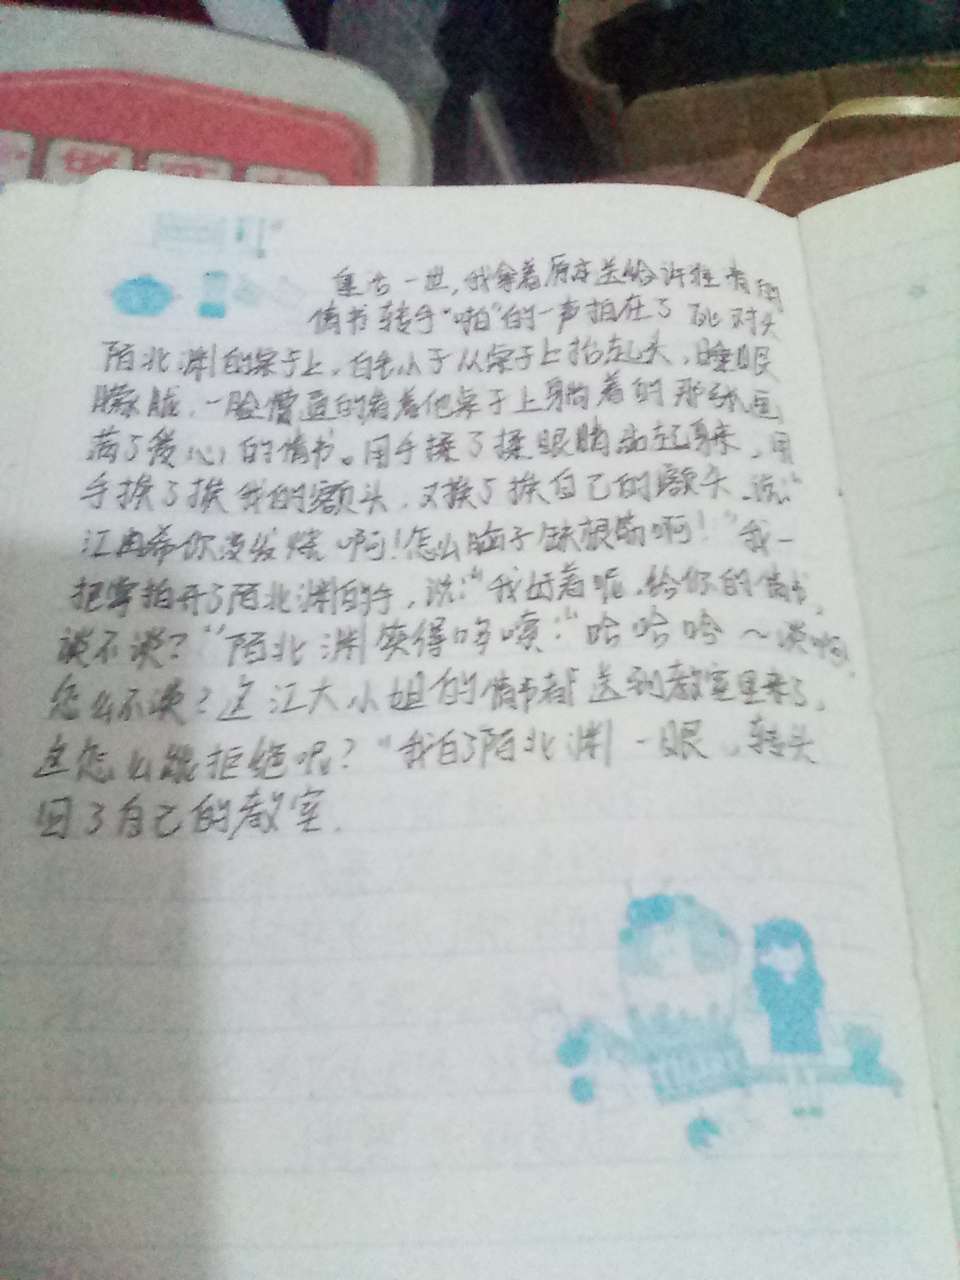 重活一世，我拿着原本送给许淮青的
情书转手“啪”的一声拍在了死对头
陌北渊的桌子上，白毛小子从桌子上抬起头，睡眼
朦胧，一脸懵逼的看着他桌子上躺着的那纸画
满了爱心的情书。用手揉了揉眼睛站起身来，用
手摸了摸我的额头，又摸了摸自己的额头，说：“
江冉希你没发烧啊！怎么脑子缺根筋啊！”我一
把掌拍开了陌北渊的手，说：“我好着呢，给你的情书，
谈不谈？”陌北渊笑得哆嗦：“哈哈哈～谈啊，
怎么不谈？这江大小姐的情书都送到教室里来了，
这怎么能拒绝呢？”我白了陌北渊一眼，转头
回了自己的教室.